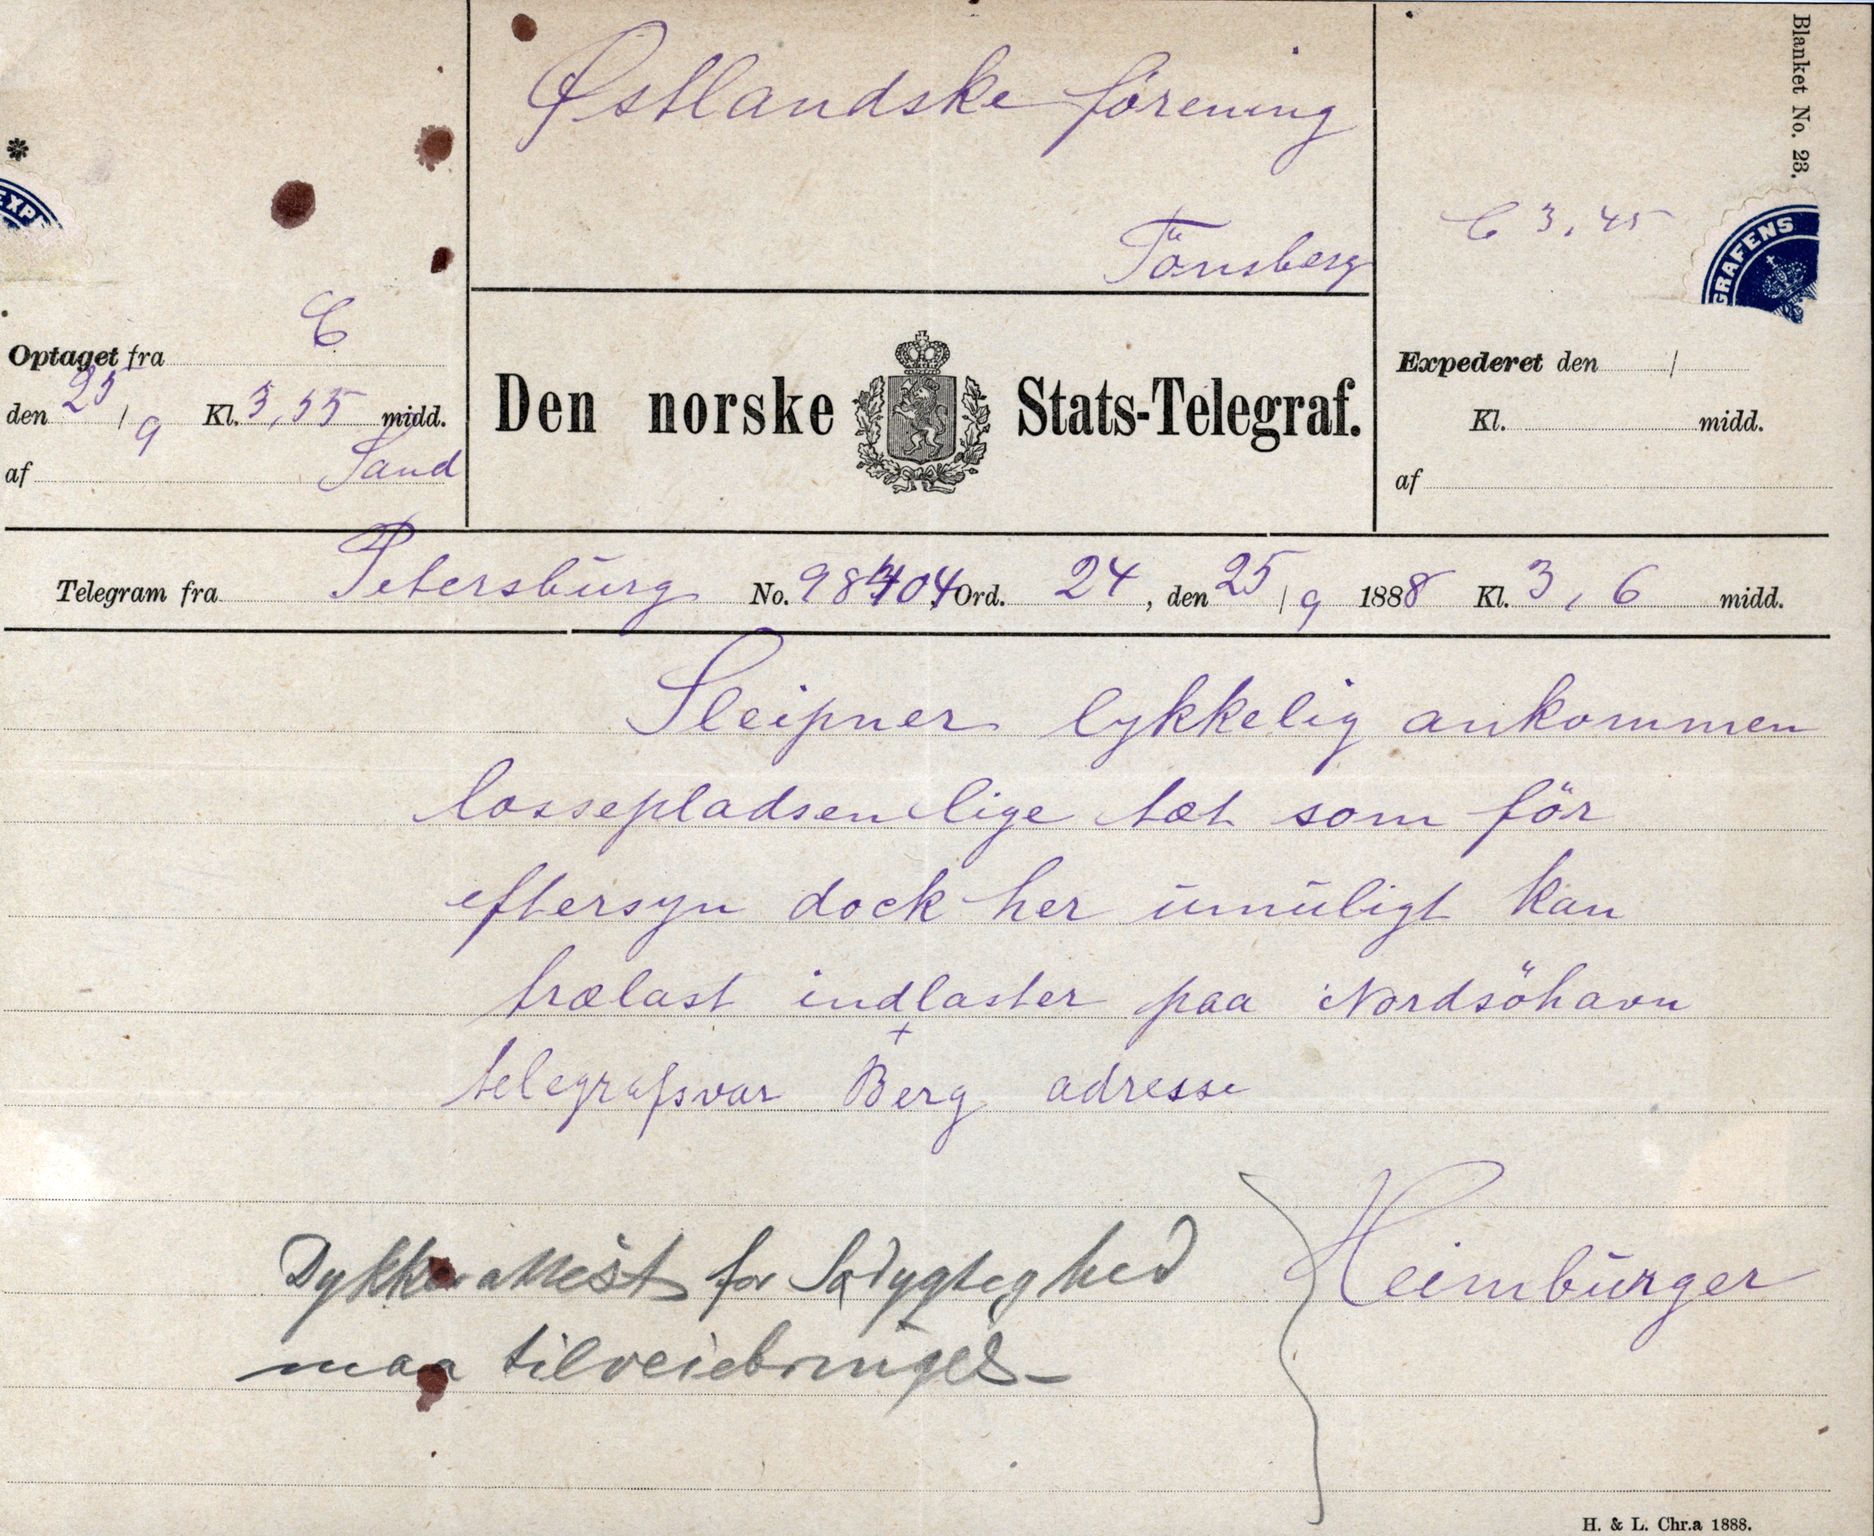 Blanket No. 23.
Østlandske förening
Tönsberg
C 3,45
*
EXP
GRAFENS
Optaget fra C
den 25/9 Kl. 3,55 midd.
af Sand
Den norske Stats-Telegraf.
Expederet den /
Kl. midd.
af
Telegram fra Petersburg No. 98 404 Ord. 24, den 25/9 1888 Kl. 3,6 midd.
Sleipner lykkelig ankommen
lossepladsen lige tæt som för
eftersyn dock her umuligt kan
trælast indlaster paa Nordsöhavn
+
telegrafsvar Berg adresse
Heimburger
Dykkerattest for Sødygtighed
maa tilveiebringes
H. & L. Chr.a 1888.